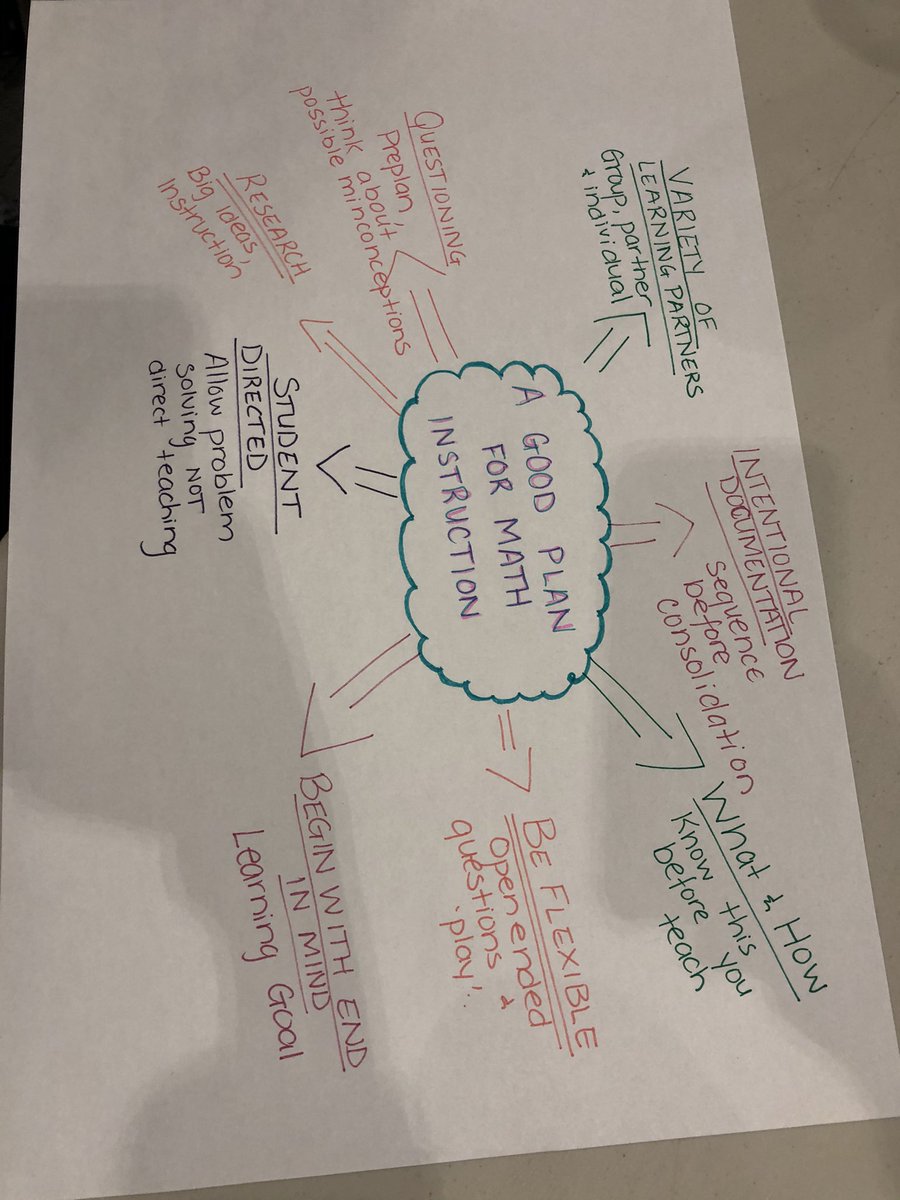 A GOOD PLAN
FOR MATH
INSTRUCTION
VARIETY OF
LEARNING PARTNERS
Group, partner
& individual
INTENTIONAL
DOCUMENTATION
sequence
before
consolidation
What & How
Know this you
before teach
BE FLEXIBLE
Open ended
questions &
'play'
BEGIN WITH END
IN MIND
Learning Goal
STUDENT
DIRECTED
Allow problem
solving NOT
direct teaching
RESEARCH
Big ideas,
instruction
QUESTIONING
Preplan,
think about
possible minconceptions